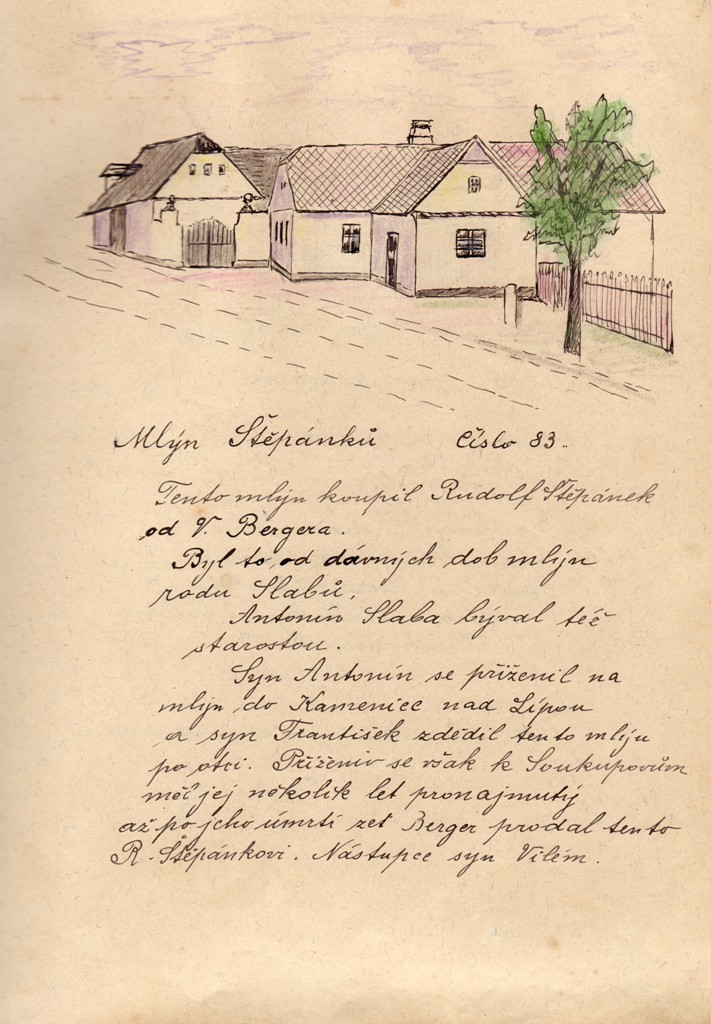 Mlýn Štěpánků Číslo 83.
Tento mlýn koupil Rudolf Štěpánek
od V. Bergera.
Byl to od dávných dob mlýn
rodu Slabů.
Antonín Slaba býval též
starostou.
Syn Antonín se přiženil na
mlýn do Kamenice nad Lípou
a syn František zdědil tento mlýn
po otci. Přiženiv se však k Soukupovům
měl jej několik let pronajmutý
až po jeho úmrtí zeť Berger prodal tento
R. Štěpánkovi. Nástupce syn Vilém.